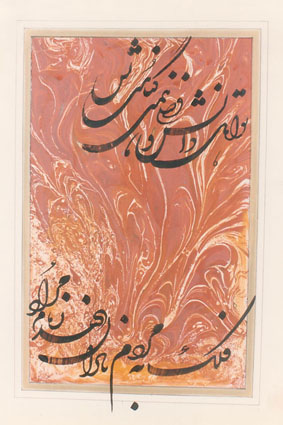 تو اهل دانش و فضلی همین گناهت بس
فلک به مردم نادان دهد زمام مراد